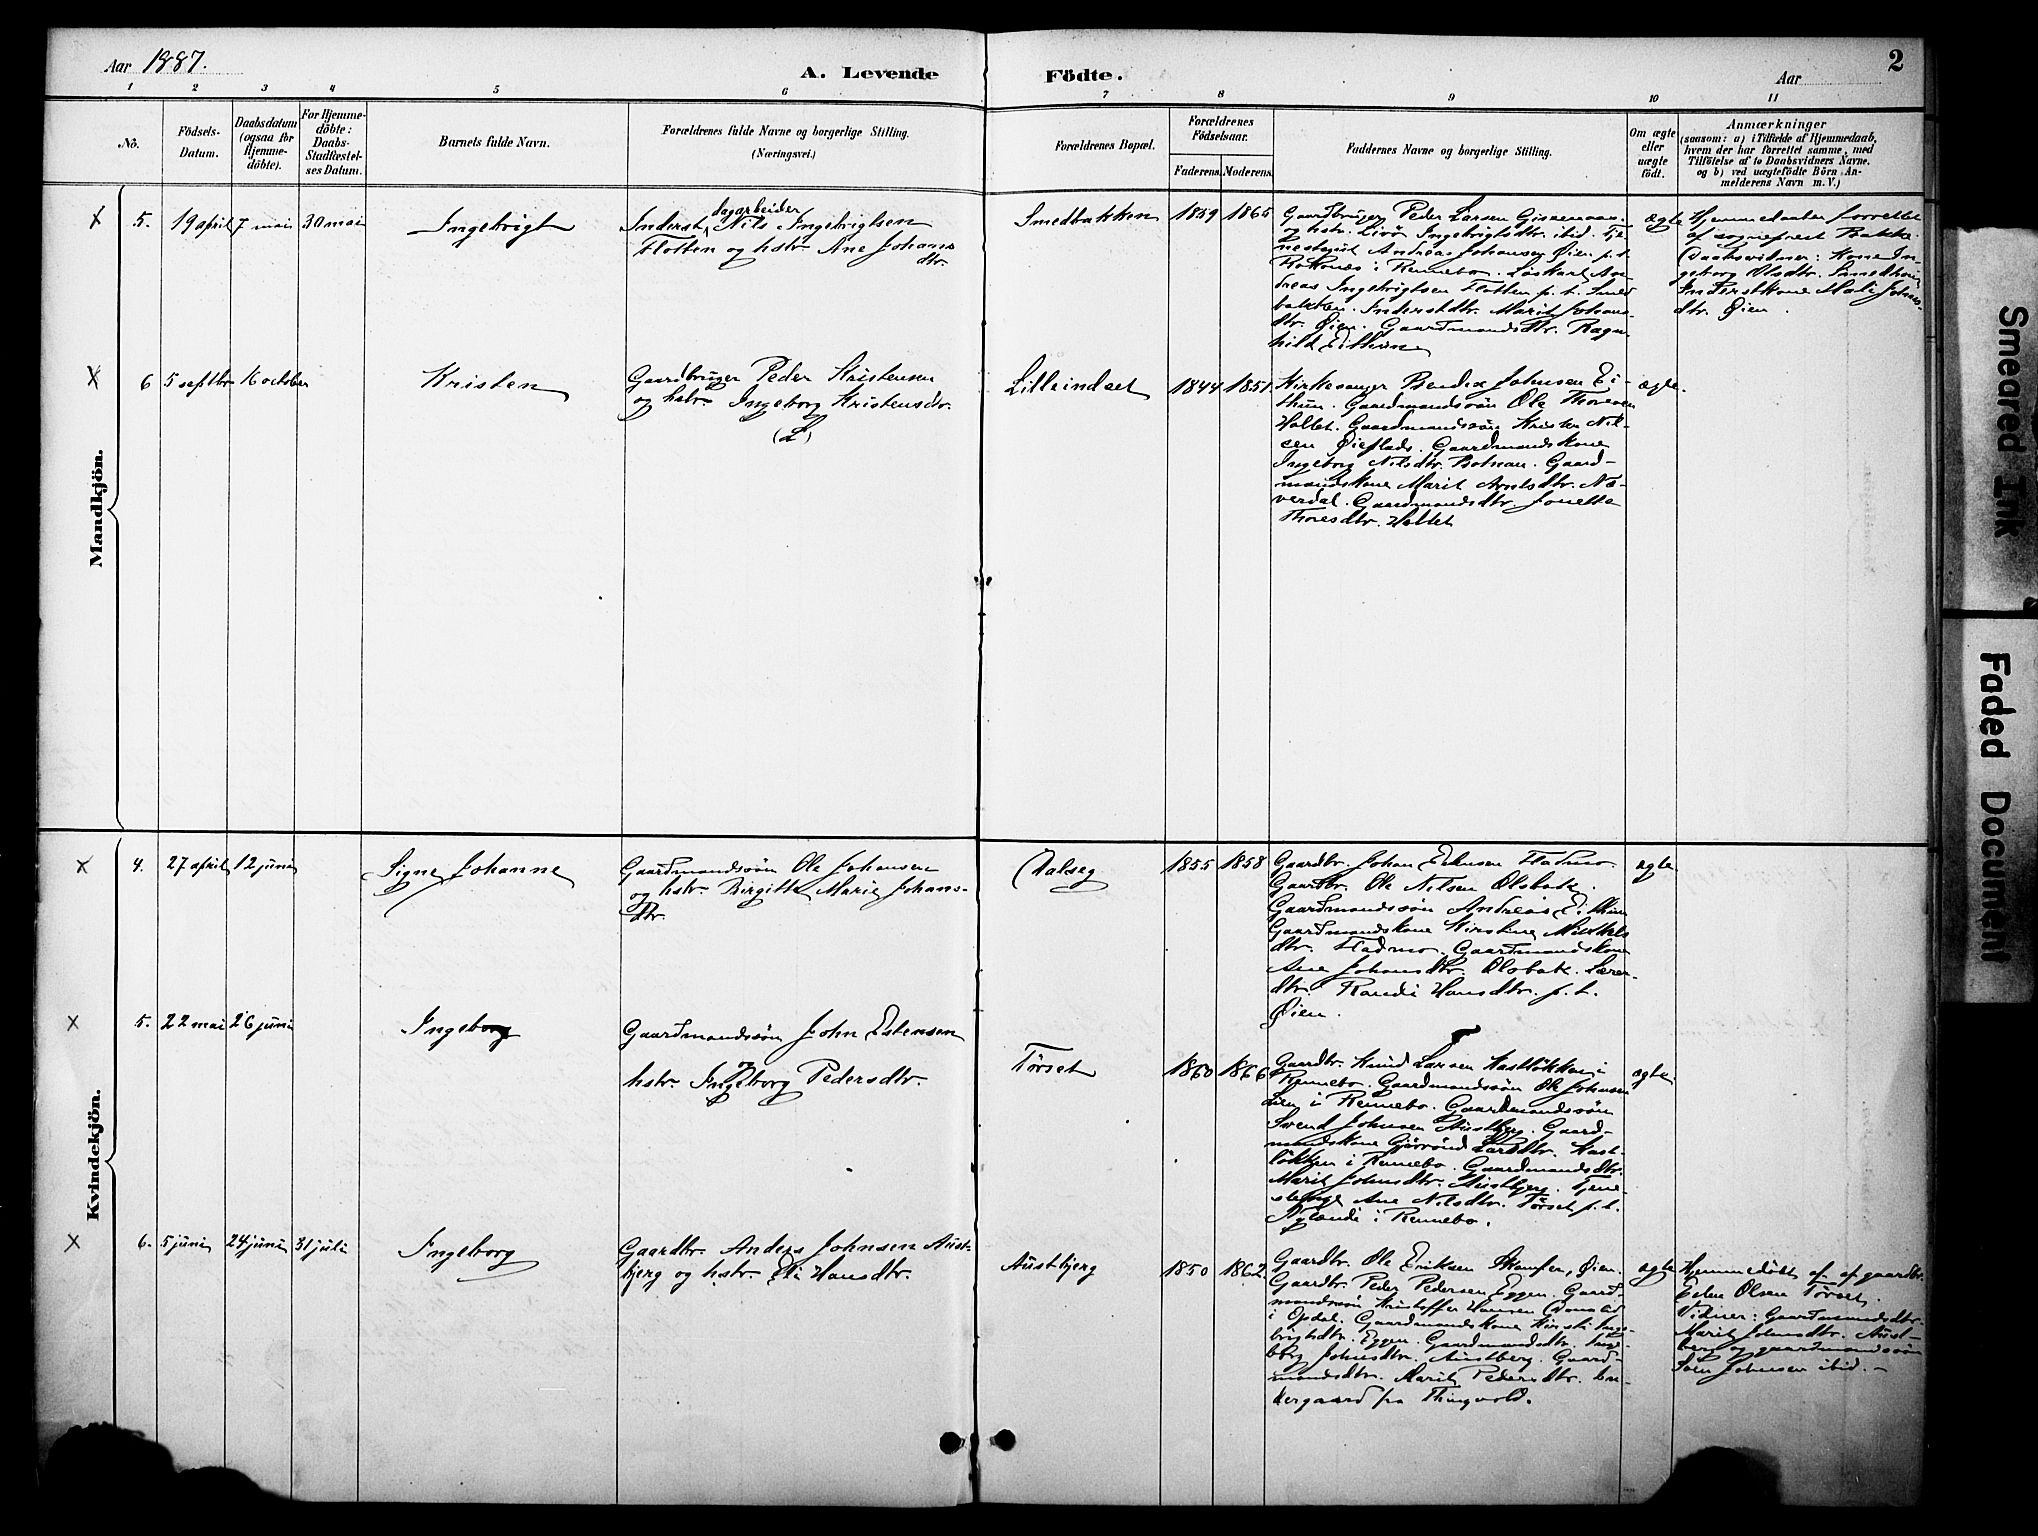 Aar 1887.
A. Levende Födte.
Aar
2
1 2 3 4 5 6 7 8 9 10 11
No.
Födsels-
Datum.
Daabsdatum
(ogsaa for
Hjemme-
döbte).
For Hjemme-
döbte:
Daabs-
Stadfæstel-
ses Datum.
Barnets fulde Navn.
Forældrenes fulde Navne og borgerlige Stilling.
(Næringsvei.)
Forældrenes Bopæl.
Forældrenes
Födselsaar.
Faderens. Moderens.
Faddernes Navne og borgerlige Stilling.
Om ægte
eller
uægte
födt.
Anmærkninger
(saasom: a) i Tilfælde af Hjemmedaab,
hvem der har forrettet samme, med
Tilföielse af to Daabsvidners Navne.
og b) ved uægtefödte Börn An-
melderens Navn m. V.)
Mandkjön.
x 5. 19 april 7 mai 30 mai
Ingebrigt
dagarbeider
Inderst Nils Ingebrigtsen
Flotten og hstr. Ane Johans
dtr.
Smedbakken
1859 1865
Gaardbruger Peder Larsen
og hstr. Ingebrigtsdtr. ibid. Tje-
nestegut Andreas Johansen Øien p.t.
i Rennebo. Løskarl An-
dreas Ingebrigtsen Flotten p.t. Smed
bakken. Inderstdtr. Marit Johans-
dtr. Øien. Gaardmandsdtr. Ragn-
hild Eithun
ægte
Hjemmedaaben forrettet
af sogneprest Bakke.
Daabsvidner: Kone In-
geborg Olsdtr.
Inderstkone Mali Johns-
dtr. Øien.
x 6 5 septbr. 16 october
Kristen
Gaardbruger Peder Kristensen
og hstr. Ingeborg Kristensdtr.
(L)
Lilleindset
1844 1851.
Kirkesanger Bendix Johnsen Ei-
thun. Gaardmandssön Ole Thoresen
Holtet. Gaardmandssön Krister Nil-
sen Øieplads. Gaardmandskone
Ingeborg Nilsdtr. Bolnan. Gaard-
mandskone Marit Arntsdtr. Næ-
verdal. Gaardmandsdtr. Jonetta
Thoresdtr. Holtet
ægte.
Kvindekjön.
x 4. 27 april 12 juni
Signe Johanne
Gaardmandssön Ole Johansen
og hstr. Birgitte Marie Johans-
dtr.
Dalseg
1855 1858
Gaardbr. Johan Eriksen Fladmo.
Gaardbr. Ole Nilsen Olsbak.
Gaardmandssön Andreas Eithun
Gaardmandskone Kirstine Mikkels
dtr. Fladmo. Gaardmandskone
Ane Johansdtr. Olsbak. Lærer-
dtr. Randi Hansdtr. p.t.
Øien.
ægte.
x 5. 22 mai 26 juni
Ingeborg
Gaardmandssön John Estensen
og
hstr. Ingeborg Pedersdtr.
Tørset
1860 1866
Gaardbr. Knud Larsen Hastløkken i
Rennebo. Gaardmandssön Ole Johnsen
Lien i Rennebo. Gaardmandssön
Svend Johnsen Austberg. Gaard-
mandskone Gjørønd Larsdtr. Hast-
løkken i Rennebo. Gaardmandsdtr.
Marit Johnsdtr. Austbjerg. Tjene-
stepige Ane Nilsdtr. Tørset p.t.
Nylænde i Rennebo.
ægte.
x 6. 5 juni 24 juni 31 juli
Ingeborg
Gaardbr. Anders Johnsen Aust-
bjerg og hstr. Eli Hansdtr.
Austbjerg
1850 1862.
Gaardbr. Ole Eriksen Skamfer, Øien.
Gaardbr. Peder Pedersen Eggen. Gaard-
mandssön Kristoffer Hansen
i Opdal. Gaardmandskone Kirsti Inge-
brigtsdtr. Eggen. Gaardmandsdtr. Inge-
borg Johnsdtr. Austberg. Gaard-
mandsdtr. Marit Pedersdtr.
fra Thingvold.
ægte
Hjemmedøbt af gaardbr.
Esten Olsen Tørset.
Vidner: Gaardmandsdtr.
Marit Johnsdtr. Aust-
berg og gaardmandssön
Johnsen ibid.
Smeared Ink
Faded Document